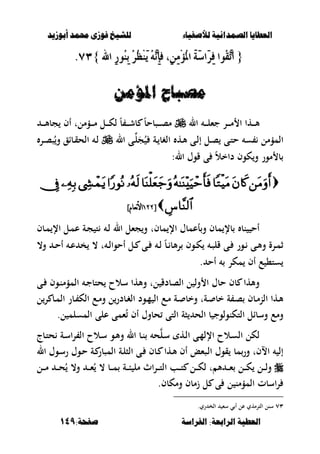 العطايا الصمدانية للأصفياء
للشيخ فوزى محمد أبوزيد
{ اتَّقُوا فِرَاسَةَ الْمُؤْمِنِ، فَإِنَّهُ يَنْظُرُ بِنُورِ اللهِ } ٧٣.
مصباح المؤمن
هذا الأمر جعله الله ﷺ مصباحاً كاشفاً لكل مؤمن، أن يجاهد
المؤمن نفسه حتى يصل إلى هذه الغاية فيُجَلِّى الله له الحقائق ويُبصره
بالأمور ويكون داخلاً فى قول الله:
﴿ أَوَمَن كَانَ مَيْتًا فَأَحْيَيْنَاهُ وَجَعَلْنَا لَهُ نُورًا يَمْشِى بِهِ فِى
النَّاسِ ﴾ [١٢٢الأنعام]
أحييناه بالإيمان وبأعمال الإيمان، ويجعل الله له نتيجة عمل الإيمان
ثمرة وهى نور فى قلبه يكون برهاناً له فى كل أحواله، لا يخدعه أحد ولا
يستطيع أن يمكر به أحد.
وهذا كان حال الأولين الصادقين، وهذا سلاح يحتاجه المؤمنون فى
هذا الزمان بصفة خاصة، وخاصة مع اليهود الغادرين ومع الكفار الماكرين
ومع وسائل التكنولوجيا الحديثة التى تحاول أن تُعمى على المسلمين.
لكن السلاح الإلهى الذى سلَّحه بنا الله وهو سلاح الفراسة نحتاج
إليه الآن، وربما يقول البعض أن هذا كان فى الثلة المباركة حول رسول الله
ﷺ ولن يكن بعدهم، لكن كتب التراث مليئة بما لا يُعد ولا يُحد من
فراسات المؤمنين فى كل زمان ومكان.
٧٣ سنن الترمذي عن أبي سعيد الخدري.
العطية الرابعة: الفراسة
صفحة:١٤٩